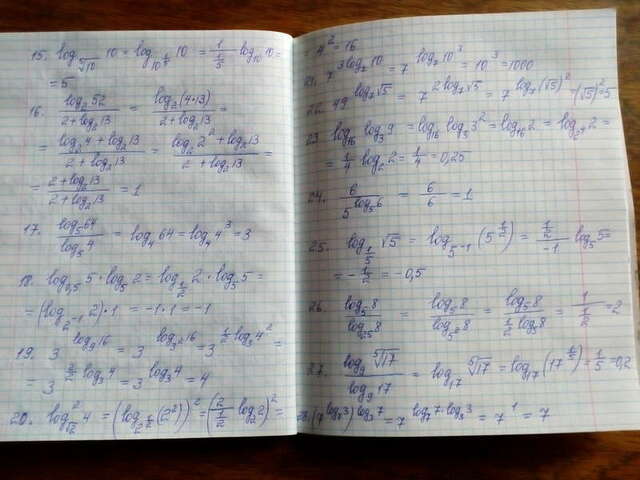 15. log_{\sqrt[5]{10}} 10 = log_{10^{1/5}} 10 = \frac{1}{\frac{1}{5}} log_{10} 10 =
= 5
16. \frac{log_2 52}{2 + log_2 13} = \frac{log_2 (4·13)}{2 + log_2 13} =
= \frac{log_2 4 + log_2 13}{2 + log_2 13} = \frac{log_2 2^2 + log_2 13}{2 + log_2 13} =
= \frac{2 + log_2 13}{2 + log_2 13} = 1
17. \frac{log_5 64}{log_5 4} = log_4 64 = log_4 4^3 = 3
18. log_{0,5} 5 · log_5 2 = log_{\frac{1}{2}} 2 · log_5 5 =
= (log_{2^{-1}} 2) · 1 = -1 · 1 = -1
19. 3^{log_9 16} = 3^{log_{3^2} 16} = 3^{\frac{1}{2} log_3 4^2} =
= 3^{\frac{2}{2} log_3 4} = 3^{log_3 4} = 4
20. log^2_{\sqrt{2}} 4 = (log_{2^{\frac{1}{2}}} (2^2))^2 = (\frac{2}{\frac{1}{2}} log_2 2)^2 =
4^2 = 16
21. 7^{3 log_7 10} = 7^{log_7 10^3} = 10^3 = 1000
22. 49^{log_7 \sqrt{5}} = 7^{2 log_7 \sqrt{5}} = 7^{log_7 (\sqrt{5})^2} = (\sqrt{5})^2 = 5
23 log_{16} log_3 9 = log_{16} log_3 3^2 = log_{16} 2 = log_{2^4} 2 =
= \frac{1}{4} log_2 2 = \frac{1}{4} = 0,25
24. \frac{6}{5^{log_5 6}} = \frac{6}{6} = 1
25. log_{\frac{1}{5}} \sqrt{5} = log_{5^{-1}} (5^{\frac{1}{2}}) = \frac{\frac{1}{2}}{-1} log_5 5 =
= -\frac{1}{2} = -0,5
26. \frac{log_5 8}{log_{25} 8} = \frac{log_5 8}{log_{5^2} 8} = \frac{log_5 8}{\frac{1}{2} log_5 8} = \frac{1}{\frac{1}{2}} = 2
27. \frac{log_9 \sqrt[5]{17}}{log_9 17} = log_{17} \sqrt[5]{17} = log_{17} (17^{\frac{1}{5}}) = \frac{1}{5} = 0,2
28. (7^{log_7 3})^{log_3 7} = 7^{log_7 7 · log_3 3} = 7^1 = 7